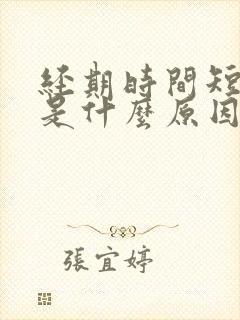 經期時間短
是什麼原因
張宜婷